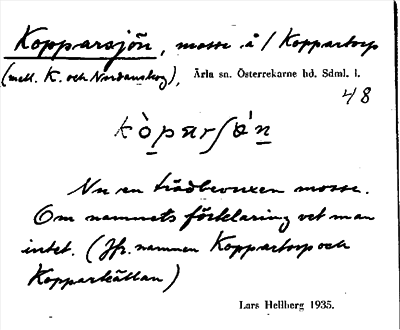 Kopparsjön, mosse å / Koppartorp
(mell. K. och Nordanskog), Ärla sn. Österrekarne hd. Sdml. l.
48
kò̱pa̱rʃɵ́ṉ
Nu en trädbevuxen mosse.
Om namnets förklaring vet man
intet. (Jfr. namnen Koppartorp och
Kopparkällan)
Lars Hellberg 1935.